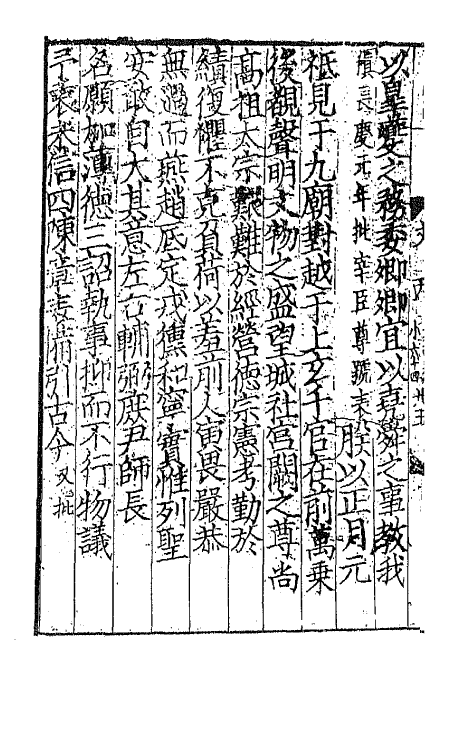 以皋夔之務委卿卿宜以堯舜之事教我
穆長慶元年批宰臣尊號表朕以正月元
祗見于九廟對越于上玄千官在前萬乗
後觀聲明文物之盛望城社宫闕之尊尚
髙祖太宗艱難於經營德宗憲考勤於
續復懼不克負荷以羞前人寅畏嚴恭
無漏而燕趙底定戎憓和寧實惟列聖
安敢自大其意左右輔弼庶尹師長
名願加薄德三詔執事抑而不行物議
予衷恭信四陳章表備引古今又批